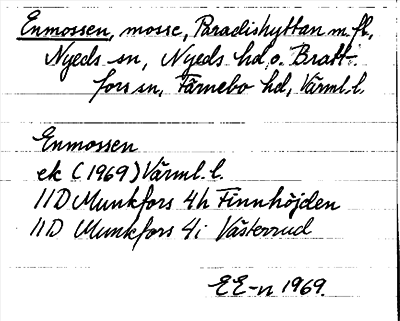 Enmossen, mosse, Paradishyttan m.fl.,
Nyeds sn, Nyeds hd o. Bratt-
fors sn, Färnebo hd, Värml. l.
Enmossen
ek (1969) Värml. l.
11D Munkfors 4h Finnhöjden
11D Munkfors 4i Västerrud
EE-n 1969.